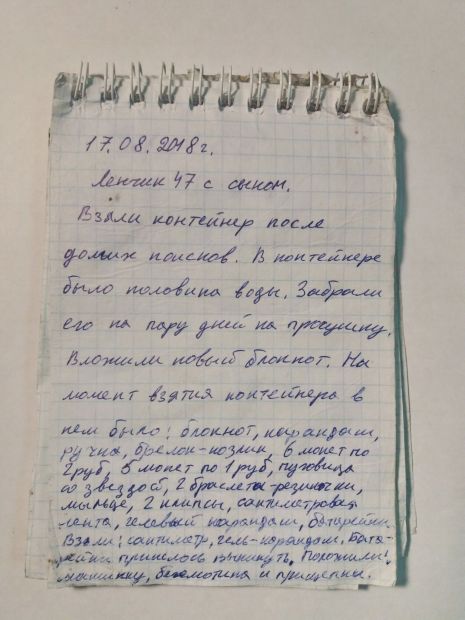 17.08.2018г.
Ленчик 47 с сыном.
Взяли контейнер после
долгих поисков. В контейнере
было половина воды. Забрали
его на пару дней на просушку.
Вложили новый блокнот. На
момент взятия контейнера в
нем было: блокнот, карандаш,
ручка, брелок-козлик, 6 монет по
2руб, 5 монет по 1 руб, пуговица
со звездой, 2 браслета-резиночки,
мыльце, 2 клипсы, сантиметровая
лента, гелевый карандаш, батарейки.
Взяли: сантиметр, гель-карандаш. Бата-
рейки пришлось выкинуть. Положили:
машинку, бегемотика и прищепки.